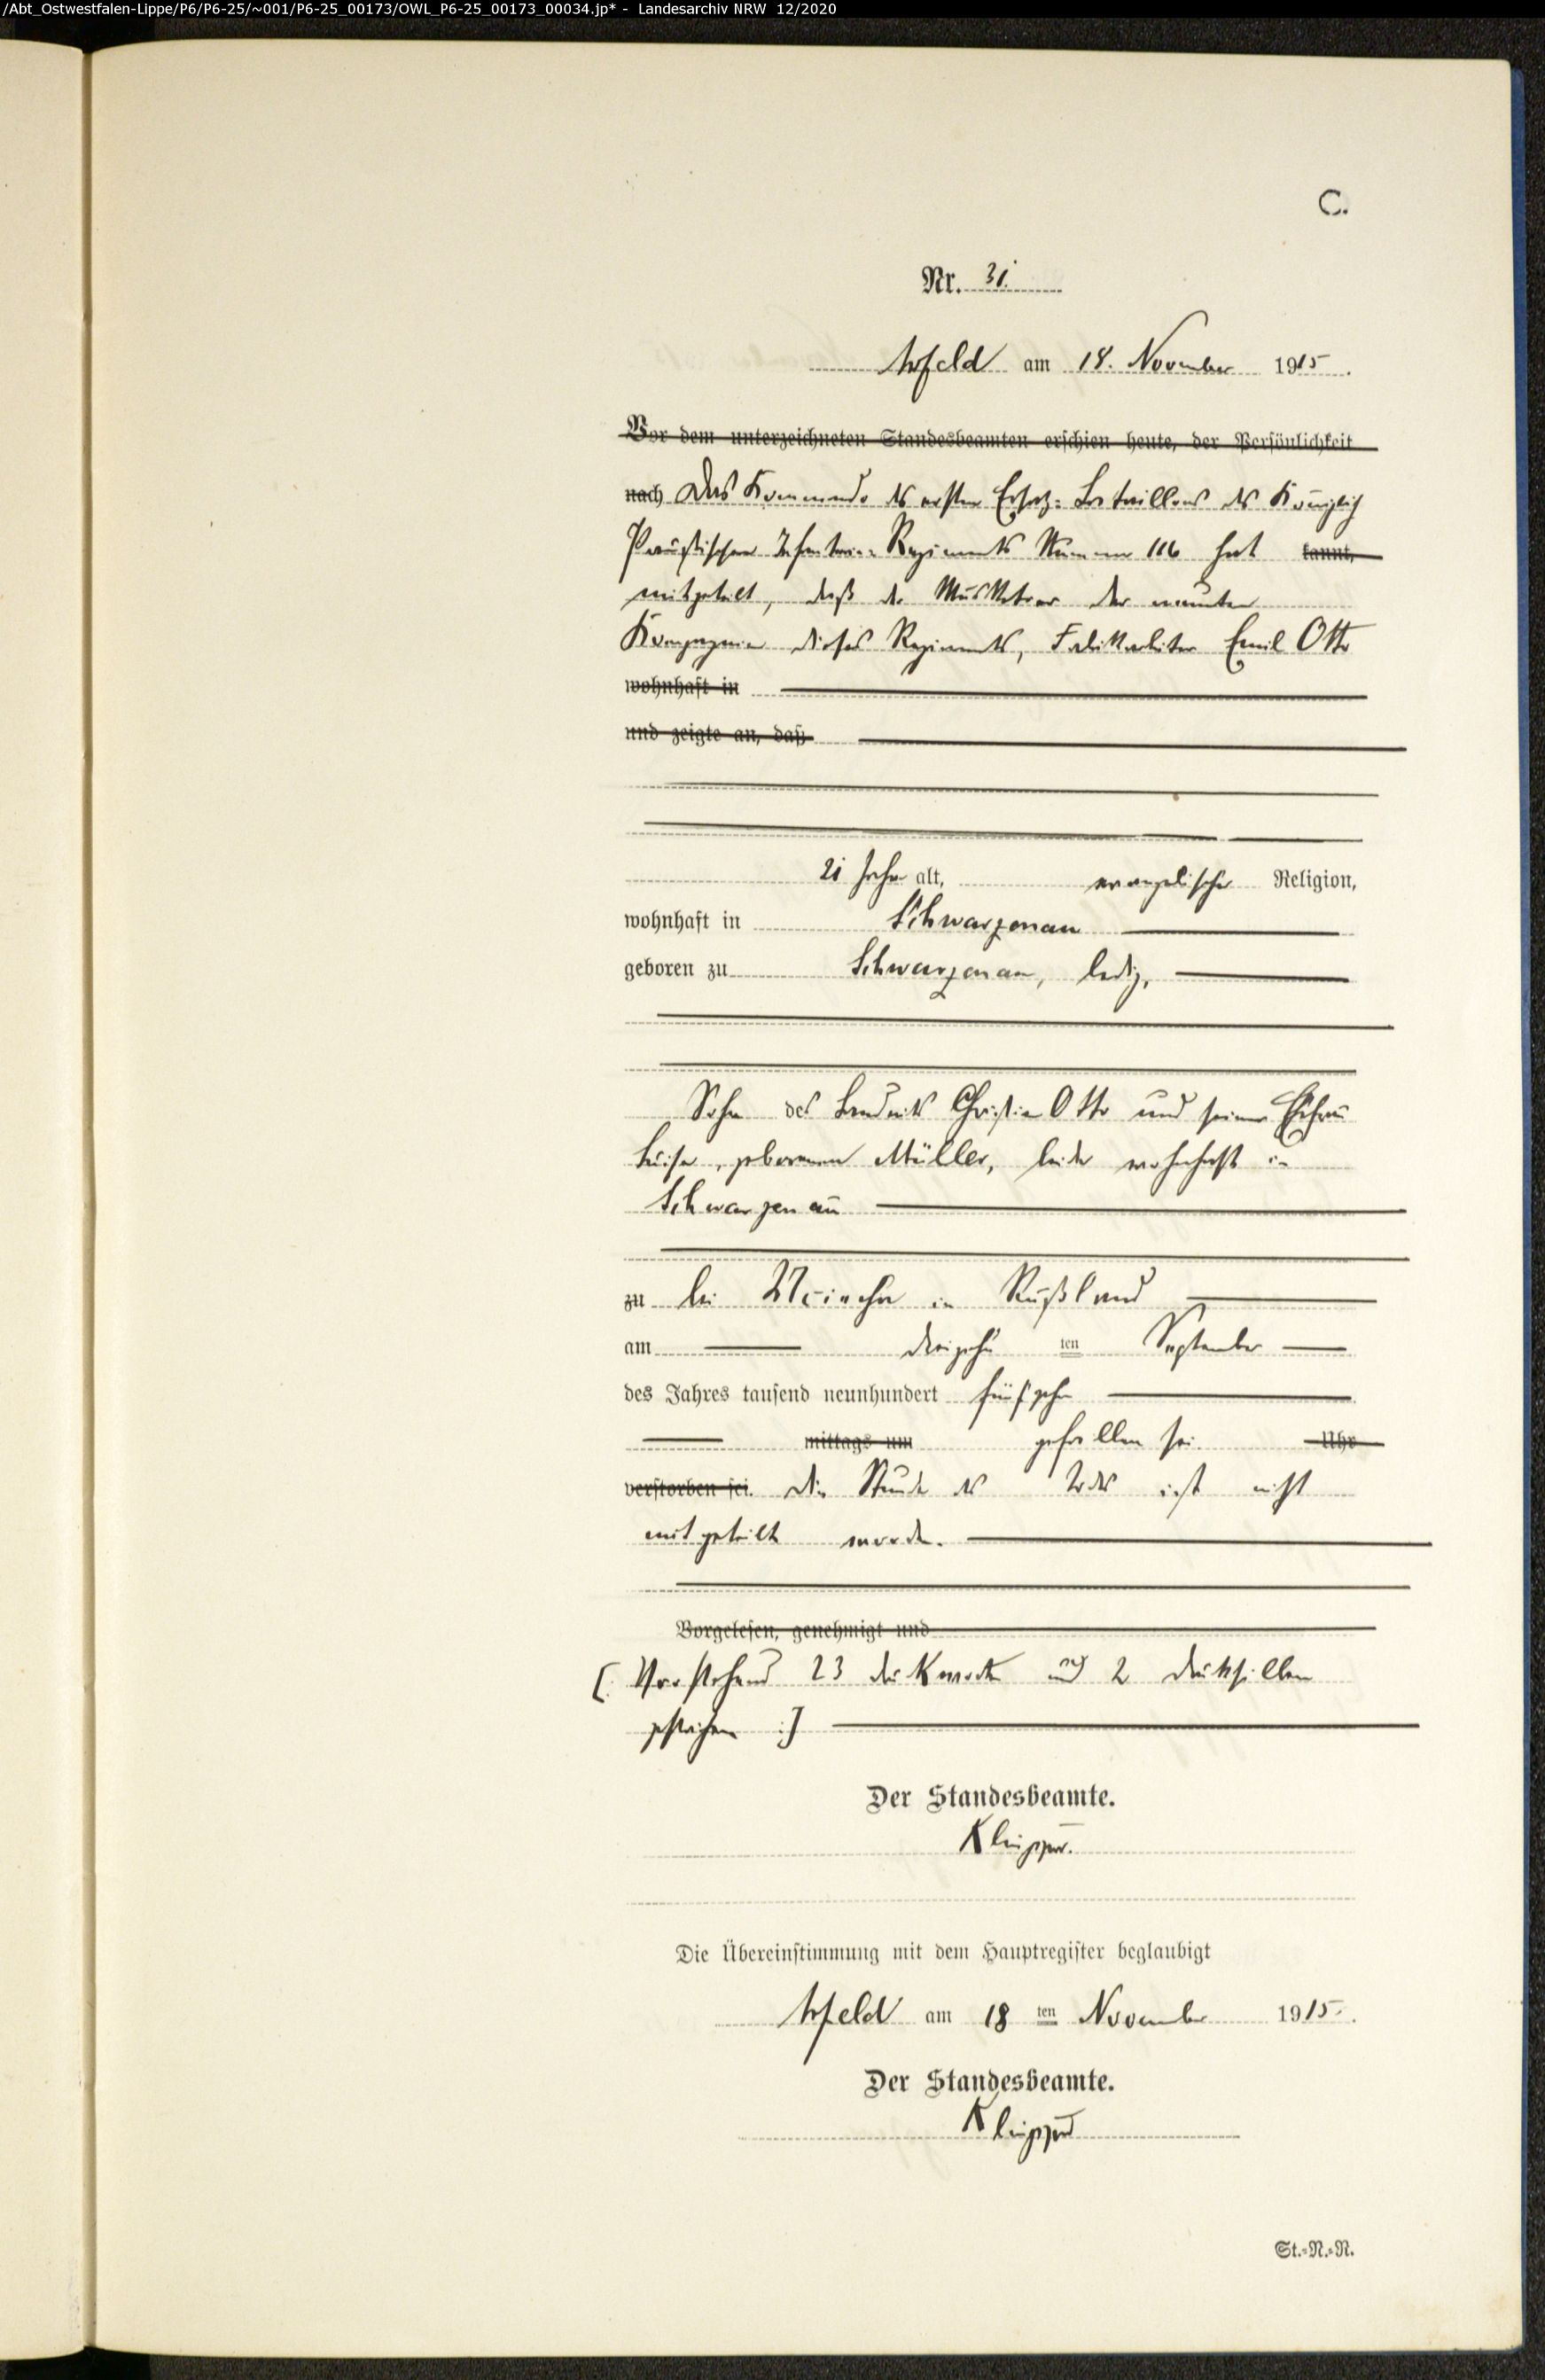 /Abt_Ostwestfalen-Lippe/P6/P6-25/~001/P6-25_00173/OWL_P6-25_00173_00034.jp* - Landesarchiv NRW 12/2020
C.
Nr. 31
Arfeld am 18. November 1915.
Vor dem unterzeichneten Standesbeamten erschien heute, der Persönlichkeit
nach Das Kommando des ersten Ersatz-Bataillons des Königlich
Preußischen Infanterie-Regiments Nummer 116 hat kannt,
mitgeteilt, daß der Musketier der neunten
Kompagnie dieses Regiments, Fabrikarbeiter Emil Otto
wohnhaft in
und zeigte an, daß
21 Jahre alt, evangelischer Religion,
wohnhaft in Schwarzenau
geboren zu Schwarzenau, ledig,
Sohn des Landwirts Christian Otto und seiner Ehefrau
Luise, geborenen Müller, beide wohnhaft in
Schwarzenau
zu bei in Rußland
am dreizehnten September
des Jahres tausend neunhundert fünfzehn
mittags um gefallen sei. Uhr
verstorben sei. Die Stunde des Todes ist nicht
mitgeteilt worden.
Vorgelesen, genehmigt und
[: Vorstehend 23 Druckworte und 2 Drucksilben
gestrichen :]
Der Standesbeamte.
Die Übereinstimmung mit dem Hauptregister beglaubigt
Arfeld am 18 ten November 1915.
Der Standesbeamte.
St.-N.-R.